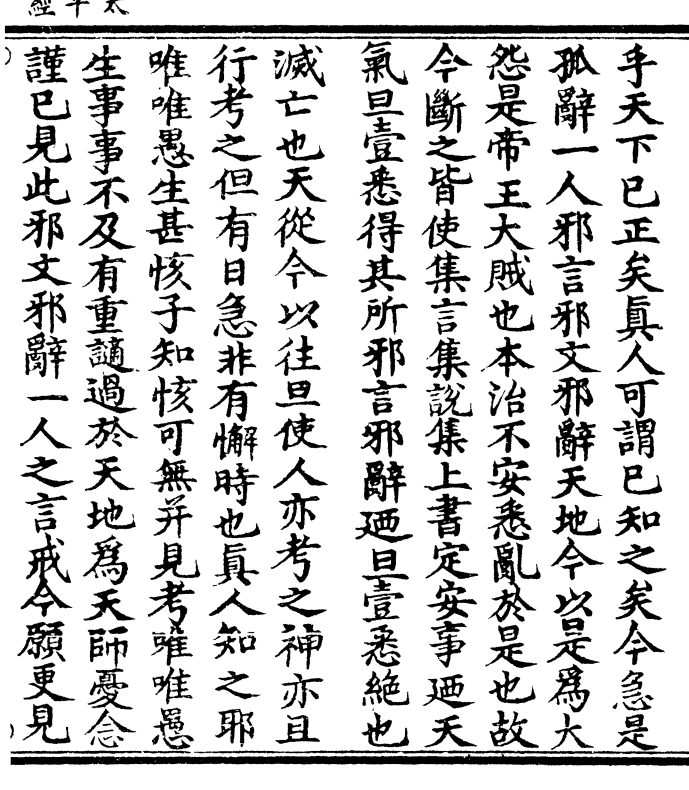 太平經
乎天下已正矣眞人可謂已知之矣今急是
孤辭一人邪言邪文邪辭天地今以是爲大
怨是帝王大賊也本治不安悉亂於是也故
今斷之皆使集言集說集上書定安事迺天
氣旦壹悉得其所邪言邪辭迺旦壹悉絶也
滅亡也天從今以往旦使人亦考之神亦且
行考之但有日急非有懈時也眞人知之耶
唯唯愚生甚恢子知恢可無并見考唯唯愚
生事事不及有重謫過於天地爲天師憂念
謹已見此邪文邪辭一人之言戒今願更見